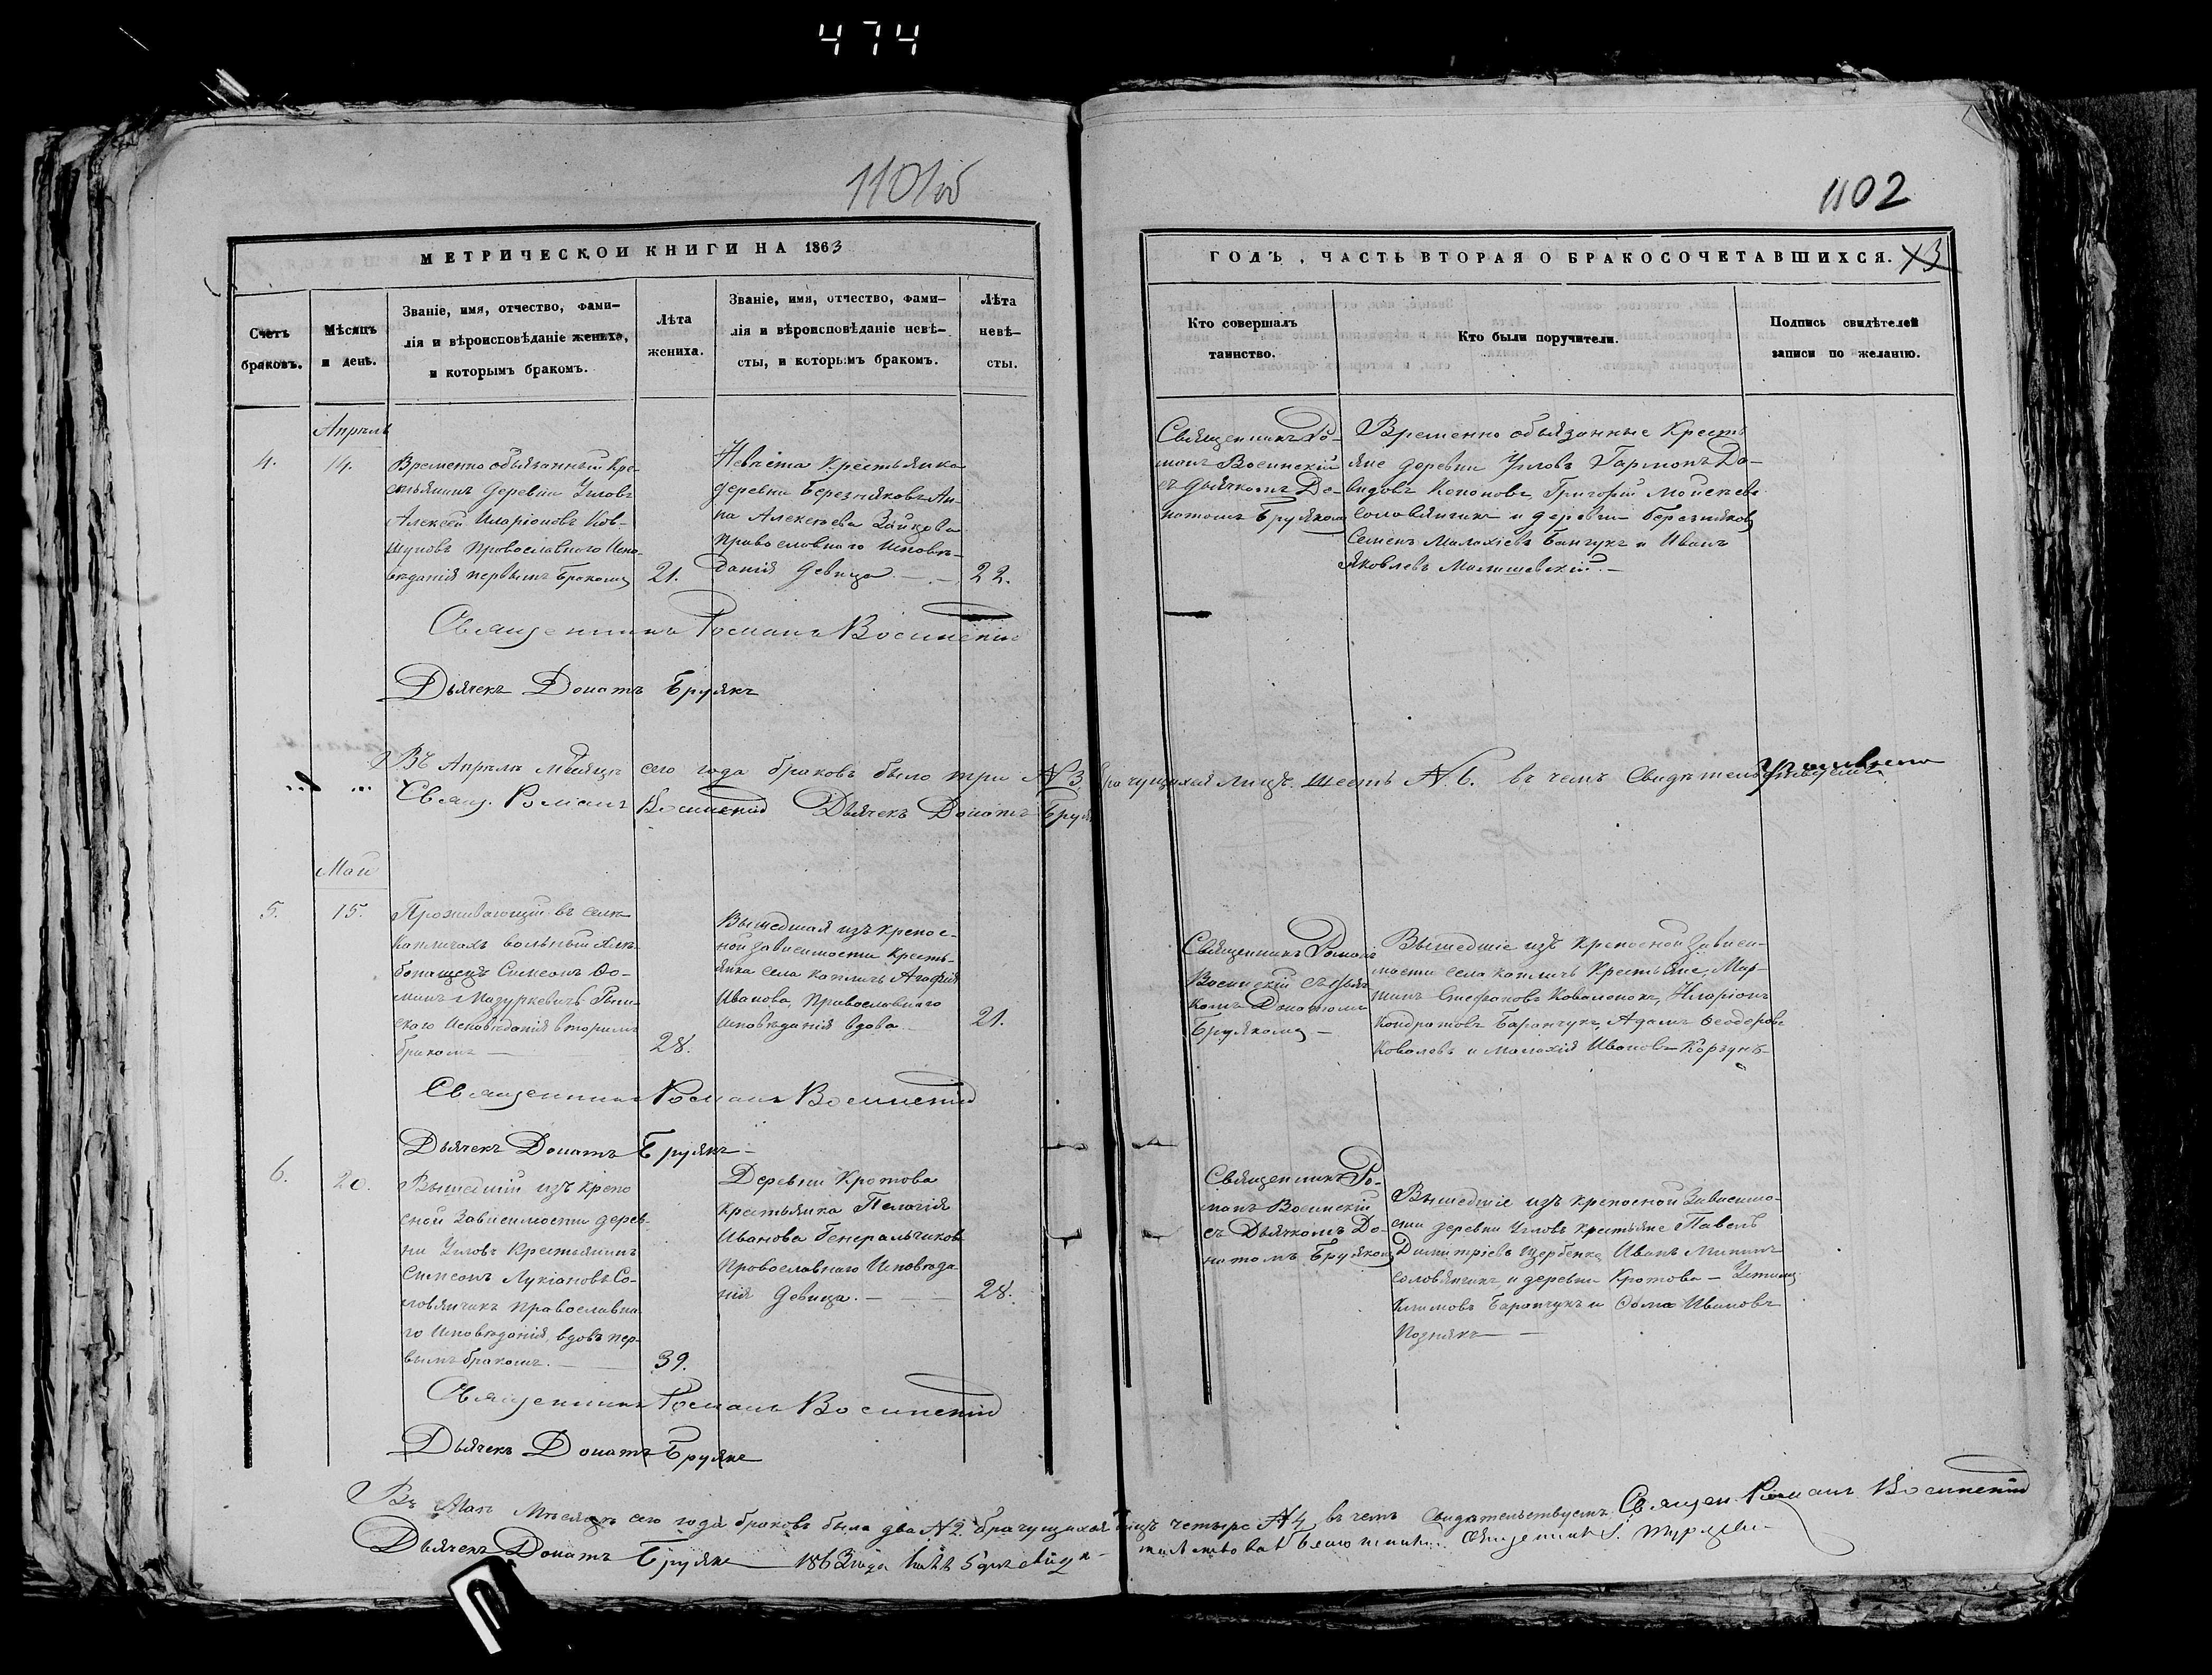 474
1101об
1102
МЕТРИЧЕСКОЙ КНИГИ НА 1863
ГОДЪ, ЧАСТЬ ВТОРАЯ О БРАКОСОЧЕТАВШИХСЯ.
Счетъ браковъ.
Мѣсяцъ и день.
Званіе, имя, отчество, фами-
лія и вѣроисповѣданіе жениха,
и которымъ бракомъ.
Лѣта
жениха.
Званіе, имя, отчество, фами-
лія и вѣроисповѣданіе невѣ-
сты, и которымъ бракомъ.
Лѣта
невѣ-
сты.
Кто совершалъ
таинство.
Кто были поручители.
Подпись свидѣтелей
записи по желанію.
Апрѣль
4.
14.
Временно обязанный Кре-
стьянинъ деревни Угловъ
Алексѣй Иларіоновъ Ков-
шуновъ Православнаго Испо-
вѣданія первымъ бракомъ
21.
Невѣста Крестьянка
деревни Березняковъ Ан-
на Алексѣева Зайкова
Православнаго Исповѣ-
данія девица
22.
Священникъ Ро-
манъ Воссинскій
съ дьячкомъ До-
натомъ Брулякомъ
Временно обязанные Кресть
яне деревни Угловъ Гармонъ Да-
видовъ Кононовъ, Григорій Моисеевъ
Соловянчикъ и деревни Березняковъ
Семенъ Малахіевъ Банчукъ и Иванъ
Яковлевъ
Священникъ Романъ Воссинскій
Дьячекъ Донатъ Брулякъ
Въ Апрѣлѣ мѣсяцѣ сего года браковъ было три №3. брачущихся лицъ шесть №6. въ чемъ свидѣтельствуемъ
Свящ. Романъ Воссинскій Дьячекъ Донатъ Бруля
Май
5.
15.
Проживающій въ селѣ
Капличахъ вольный хлѣ-
бопашецъ Симеонъ Фо-
минъ Мазуркевичъ Рим-
скаго Исповѣданія вторымъ
бракомъ
28.
Вышедшая изъ крепос-
ной зависимости кресть-
янка села Капличъ Агафія
Иванова, Православнаго
исповѣданія вдова
21.
Священникъ Романъ
Воссинскій съ дьяч
комъ Донатомъ
Брулякомъ
Вышедшіе изъ крепосной зависи-
мости села Капличъ Крестьяне, Мар-
тинъ Стефановъ Коваленокъ, Иларіонъ
Кондратовъ Баранчукъ, Адамъ Феодоровъ
Ковалевъ и Малахій Ивановъ Корзунъ
Священникъ Романъ Воссинскій
Дьячекъ Донатъ Брулякъ
6.
20.
Вышедшій изъ крепо
сной Зависимости дерев-
ни Угловъ Крестьянинъ
Симеонъ Лукіановъ Со-
ловянчикъ Православна-
го исповѣданія, вдовъ пер-
вымъ бракомъ.
39.
Деревни Кротова
крестьянка Пелагія
Иванова Генеральчикова
Православнаго Исповѣда
нія девица.
28.
Священникъ Ро-
манъ Воссинскій
съ Дьячкомъ До-
натомъ Брулякомъ
Вышедшіе изъ крепосной Зависимо-
сти деревни Угловъ крестьяне Павелъ
Димитріевъ Щербенка, Иванъ Мининъ
Соловянчикъ, и деревни Кротова
Климовъ Баранчукъ и Фома Ивановъ
Познякъ
Священникъ Романъ Воссинскій
Дьячекъ Донатъ Брулякъ
Въ Маѣ Мѣсяцѣ сего года браковъ было два №2. брачущихся лицъ четыре №4, въ чемъ свидѣтельствуемъ. Священ. Романъ Воссинскій
Дьячекъ Донатъ Брулякъ 1863 года